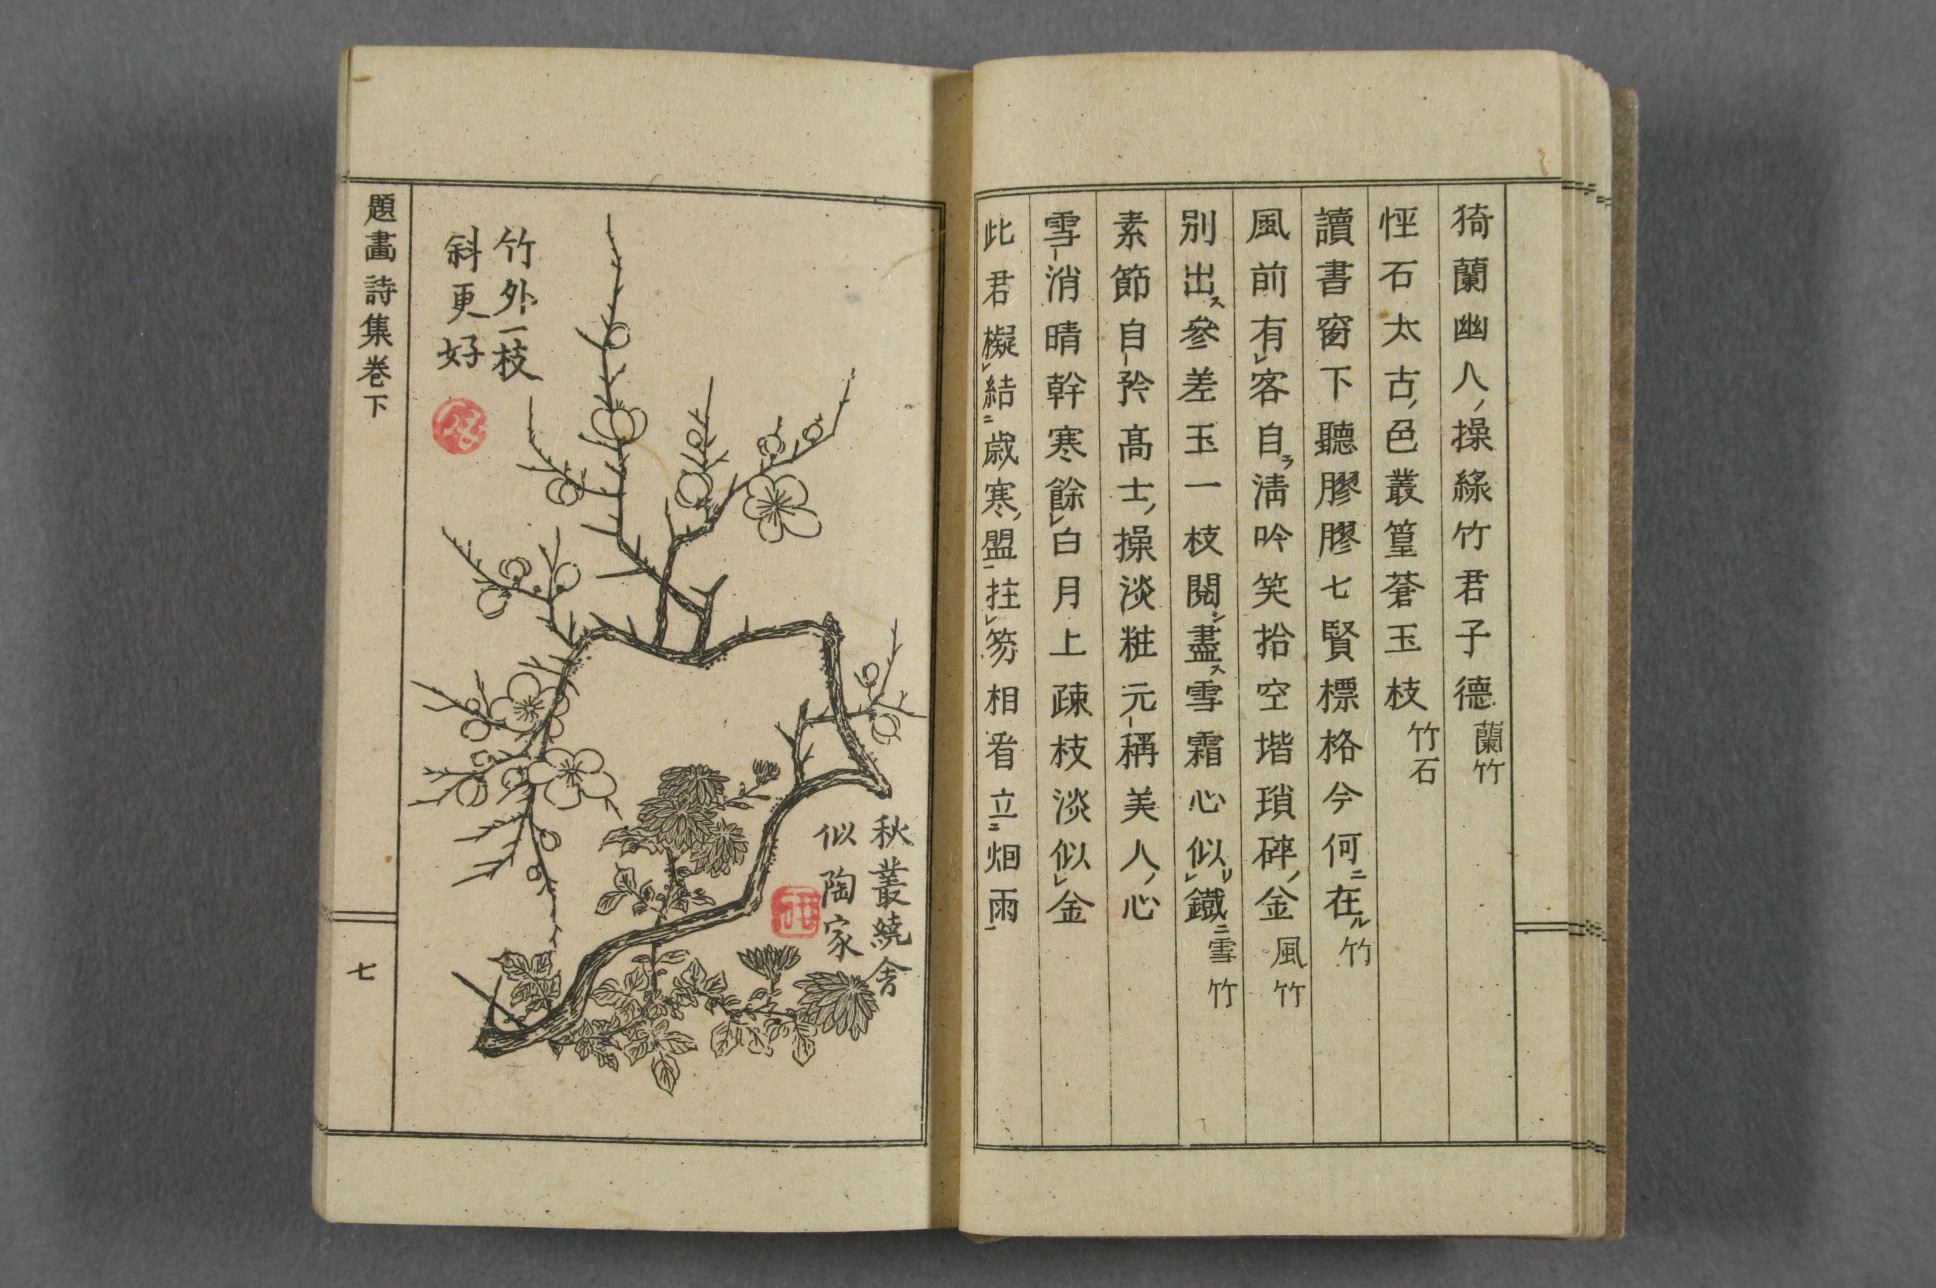 猗蘭幽人ノ操綠竹君子德 蘭竹
怪石太古ノ色叢篁蒼玉枝 竹石
讀書窗下聽膠膠七賢標格今何ニ在ル 竹
風前有レ客自ラ淸吟笑拾空堦瑣碎ノ金 風竹
別出ス參差玉一枝閱シ盡ス雪霜心似リレ鐵ニ 雪竹
素節自一矜高士ノ操淡粧元一稱美人ノ心
雪一消晴幹寒餘レ白月上疎枝淡似レ金
此君擬レ結二歲寒ノ盟一拄レ笻相看立二烟雨一
秋叢繞舍
似陶家
竹外一枝
斜更好
題畫詩集卷下
七